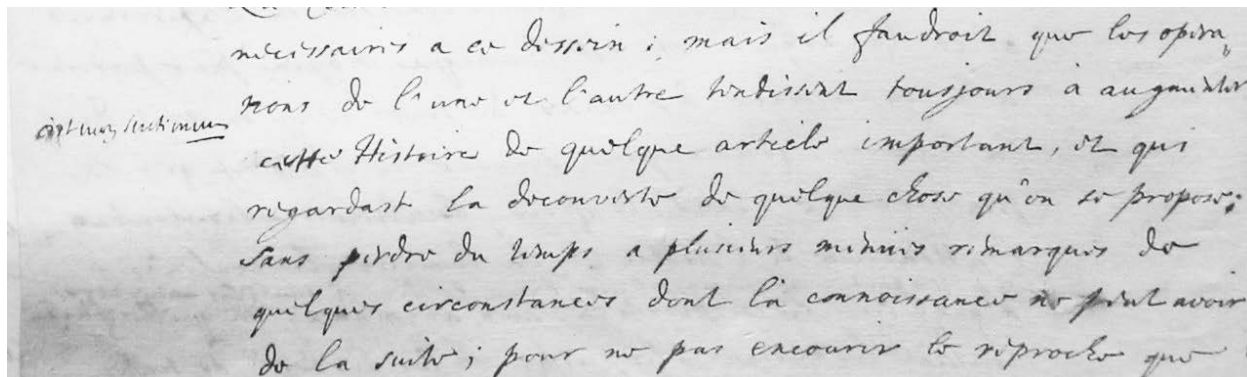 necessaires a ce dessein ; mais il faudroit que les opera,
tions de l'une et l'autre tendissent tousjours à augmenter
c'est mon sentiment
cette Histoire de quelque article important, et qui
regardast la decouverte de quelque chose qu'on se propose;
sans perdre du temps a plusieurs menues remarques de
quelques circonstances dont la connoissance ne peut avoir
de la suite ; pour ne pas encourir le reproche que